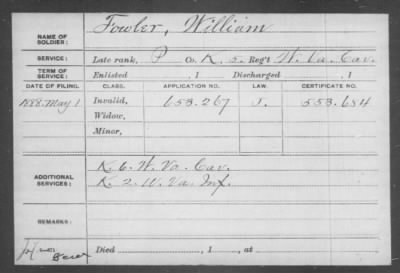 Fowler, William
NAME OF
SOLDIER:
SERVICE: Late rank, P Co. K. 5. Reg't W. Va. Cav.
TERM OF
SERVICE: Enlisted , 1 Discharged , 1
DATE OF FILING. CLASS. APPLICATION NO. LAW. CERTIFICATE NO.
1888. May 1 Invalid, 653.267 J. 553.684
Widow,
Minor,
K. 6. W. Va. Cav.
ADDITIONAL
SERVICES: K. 2. W. Va. Inf.
REMARKS:
Died , 1 , at